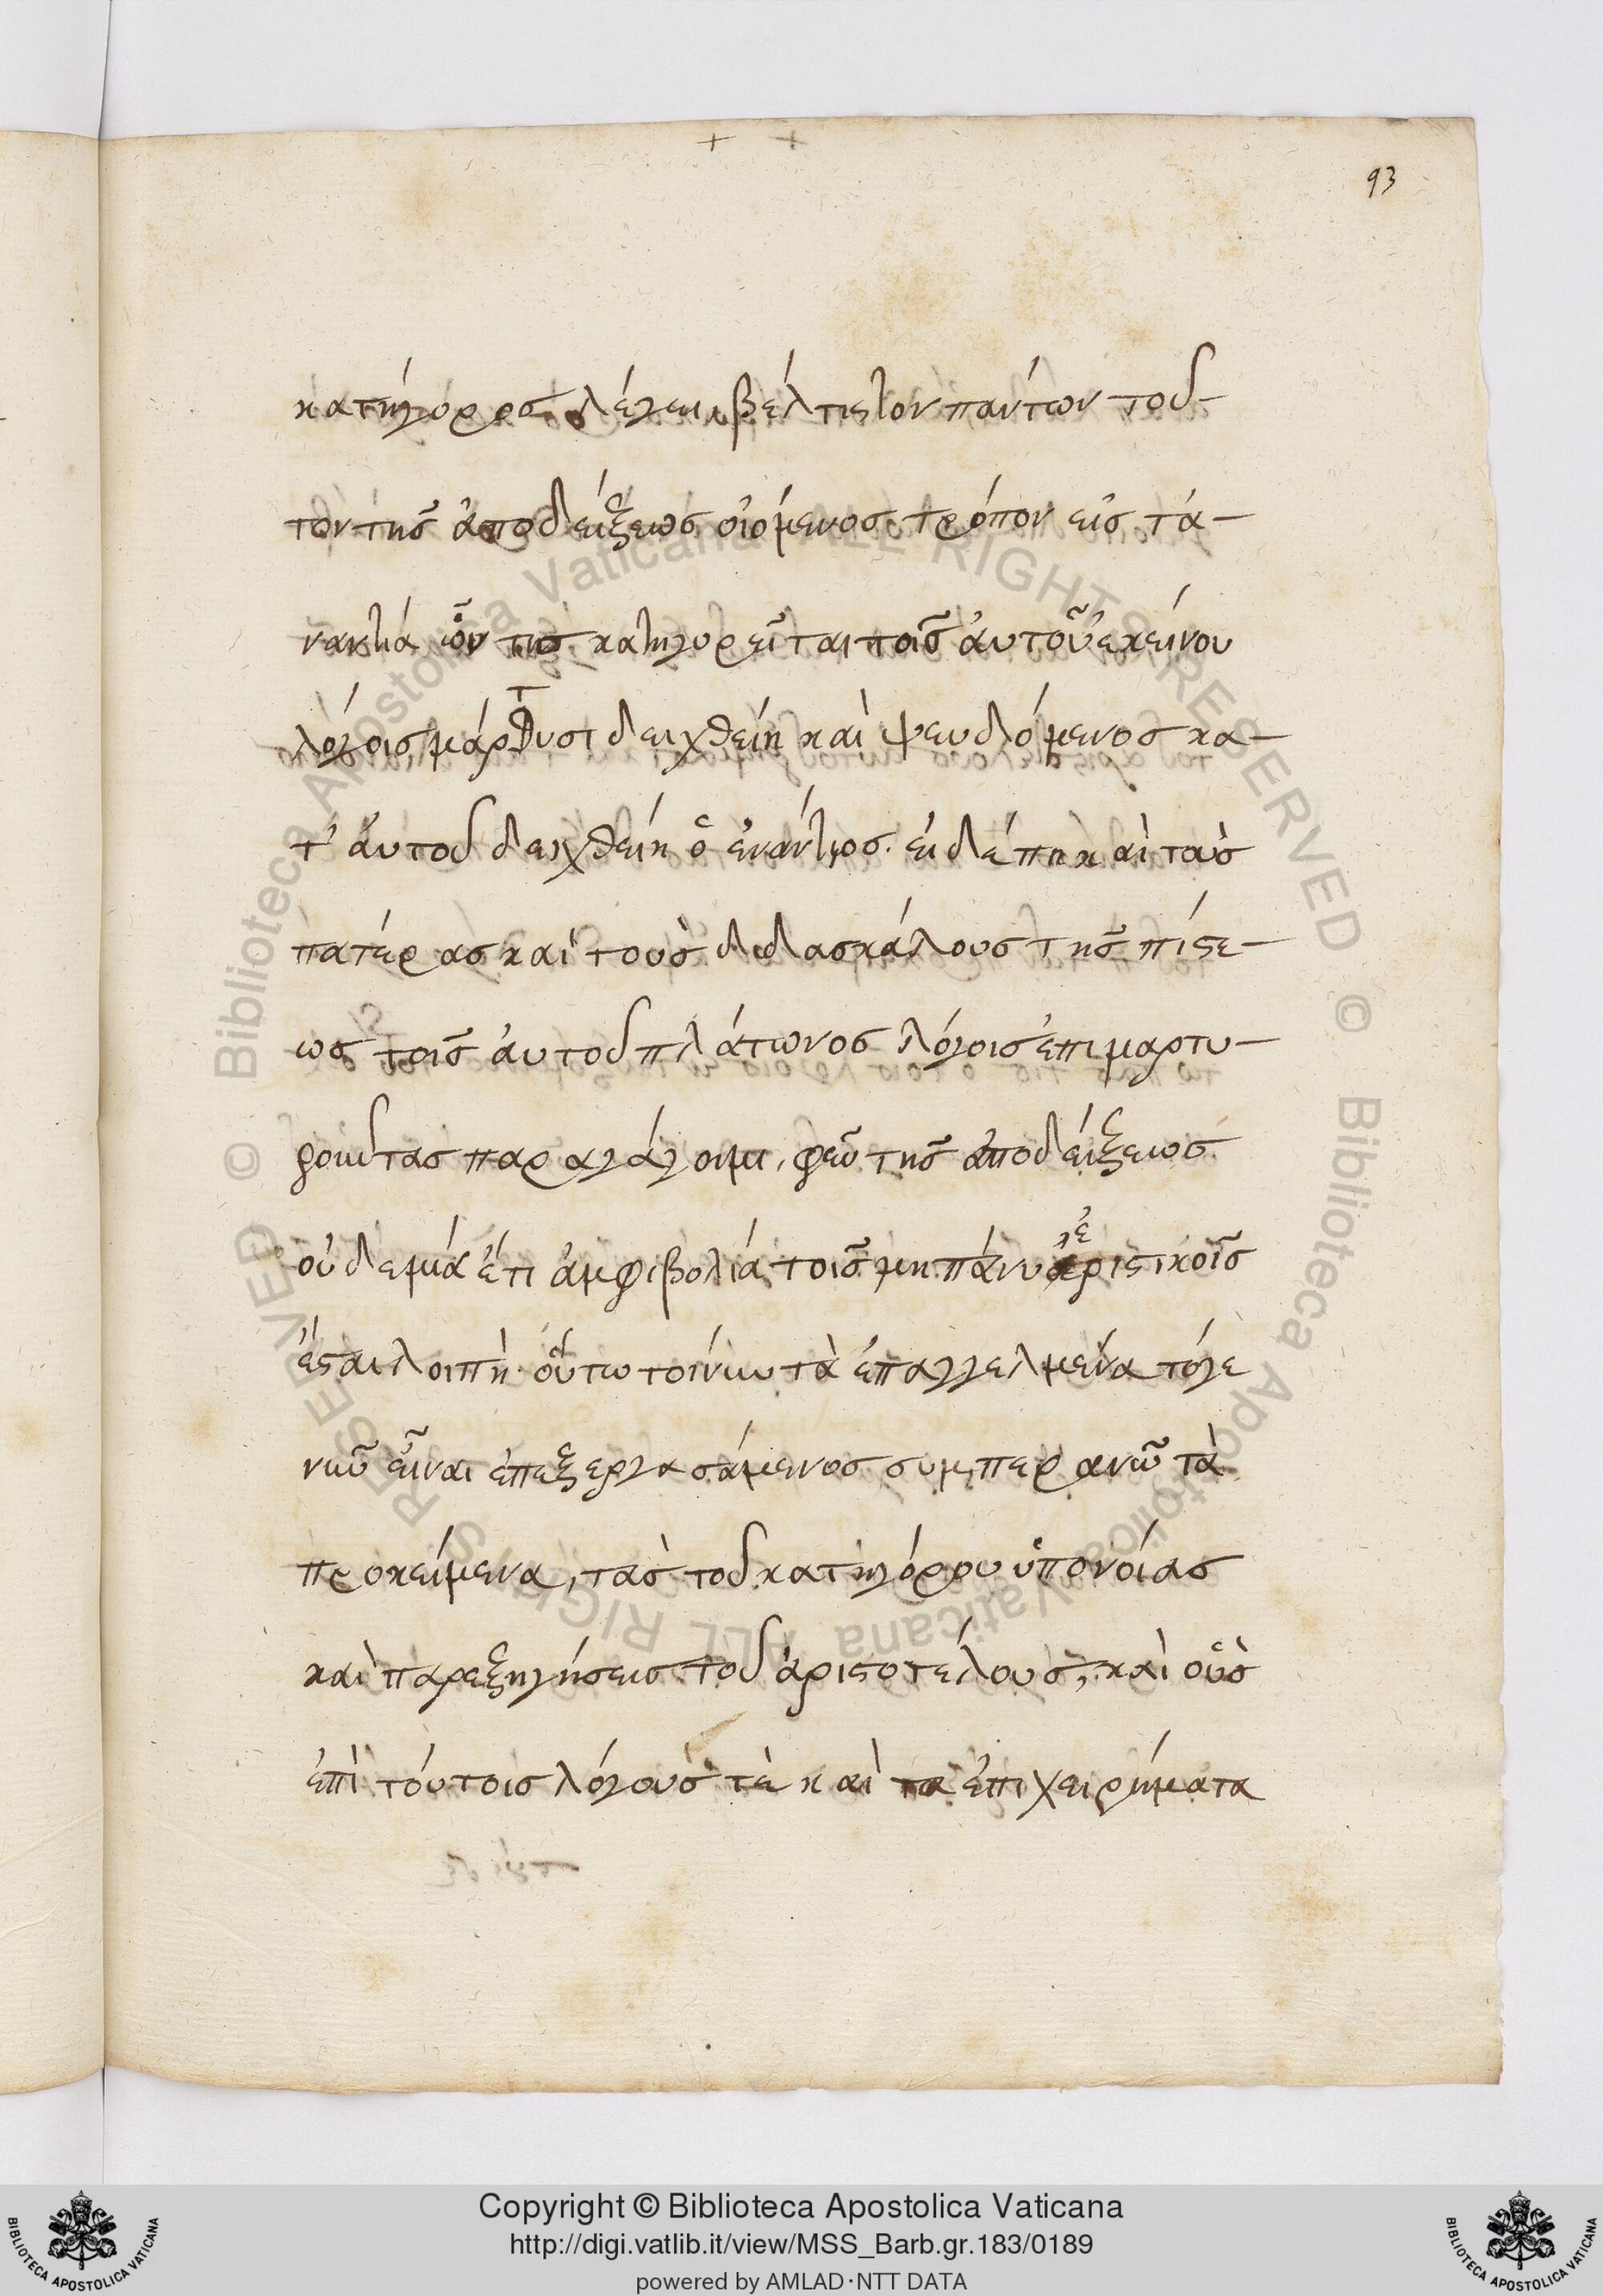 93
κατήγορος λέγει, βέλτιστον πάντων τοῦ-
τον τῆς ἀποδείξεως οἰόμενος τρόπον εἰς τἀ-
ναντία ὧν τις κατηγορεῖται τοῖς ἀυτοῦ ἐκείνου
λόγοις μάρτυσι δειχθείη καὶ ψευδόμενος κα-
τ' ἀυτοῦ δειχθείη ὁ ἐνάντιος. εἰ δέ πη καὶ τοὺς
πατέρας καὶ τοὺς διδασκάλους τῆς πίστε-
ως τοῖς ἀυτοῦ πλάτωνος λόγοις ἐπιμαρτυ-
ροῦντας παραγάγοιμι, φεῦ τῆς ἀποδείξεως
οὐδεμιά ἔτι ἀμφιβολιά τοῖς μη πάνυ γἐριστικοῖς
ἔσται λοιπὴ. οὕτω τοίνυν τὰ ἐπαγγελμένα τόγε
νῦν εἶναι ἐπεξεργασάμενος συμπερανῶ τὰ
προκείμενα, τὰς τοῦ κατηγόρου ὑπονοίας
καὶ παρεξηγήσεις τοῦ ἀριστοτέλους, καὶ οὓς
ἐπὶ τούτοις λόγους τὲ καὶ τα ἐπιχειρήματα
Copyright © Biblioteca Apostolica Vaticana
http://digi.vatlib.it/view/MSS_Barb.gr.183/0189
powered by AMLAD·NTT DATA
BIBLIOTECA APOSTOLICA VATICANA
BIBLIOTECA APOSTOLICA VATICANA
© Biblioteca Apostolica Vaticana ALL RIGHTS RESERVED © Biblioteca Apostolica Vaticana ALL RIGHTS RESERVED